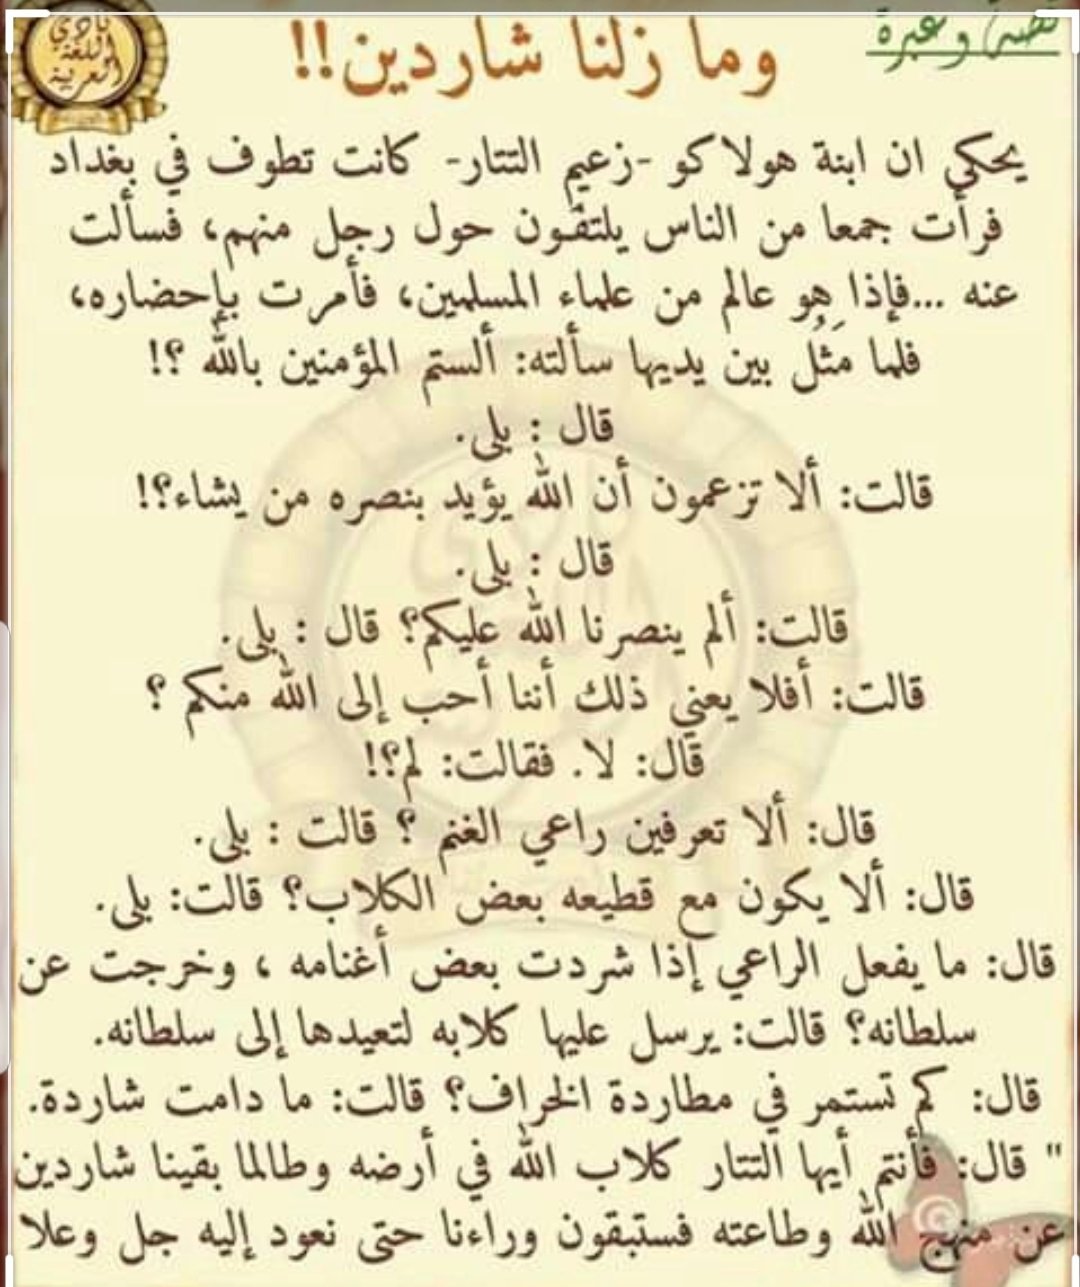 قصة وعبرة
نادي
اللغة
العربية
وما زلنا شاردين!!
يحكي ان ابنة هولاكو -زعيم التتار- كانت تطوف في بغداد
فرأت جمعا من الناس يلتفون حول رجل منهم، فسألت
عنه ...فإذا هو عالم من علماء المسلمين، فأمرت بإحضاره،
فلما مَثُل بين يديها سألته: ألستم المؤمنين بالله ؟!
قال : بلى.
قالت: ألا تزعمون أن الله يؤيد بنصره من يشاء؟!
قال : بلى.
قالت: ألم ينصرنا الله عليكم؟ قال : بلى.
قالت: أفلا يعني ذلك أننا أحب إلى الله منكم ؟
قال: لا. فقالت: لم؟!
قال: ألا تعرفين راعي الغنم ؟ قالت : بلى.
قال: ألا يكون مع قطيعه بعض الكلاب؟ قالت: بلى.
قال: ما يفعل الراعي إذا شردت بعض أغنامه ، وخرجت عن
سلطانه؟ قالت: يرسل عليها كلابه لتعيدها إلى سلطانه.
قال: كم تستمر في مطاردة الخراف؟ قالت: ما دامت شاردة.
" قال: فأنتم أيها التتار كلاب الله في أرضه وطالما بقينا شاردين
عن منهج الله وطاعته فستبقون وراءنا حتى نعود إليه جل وعلا